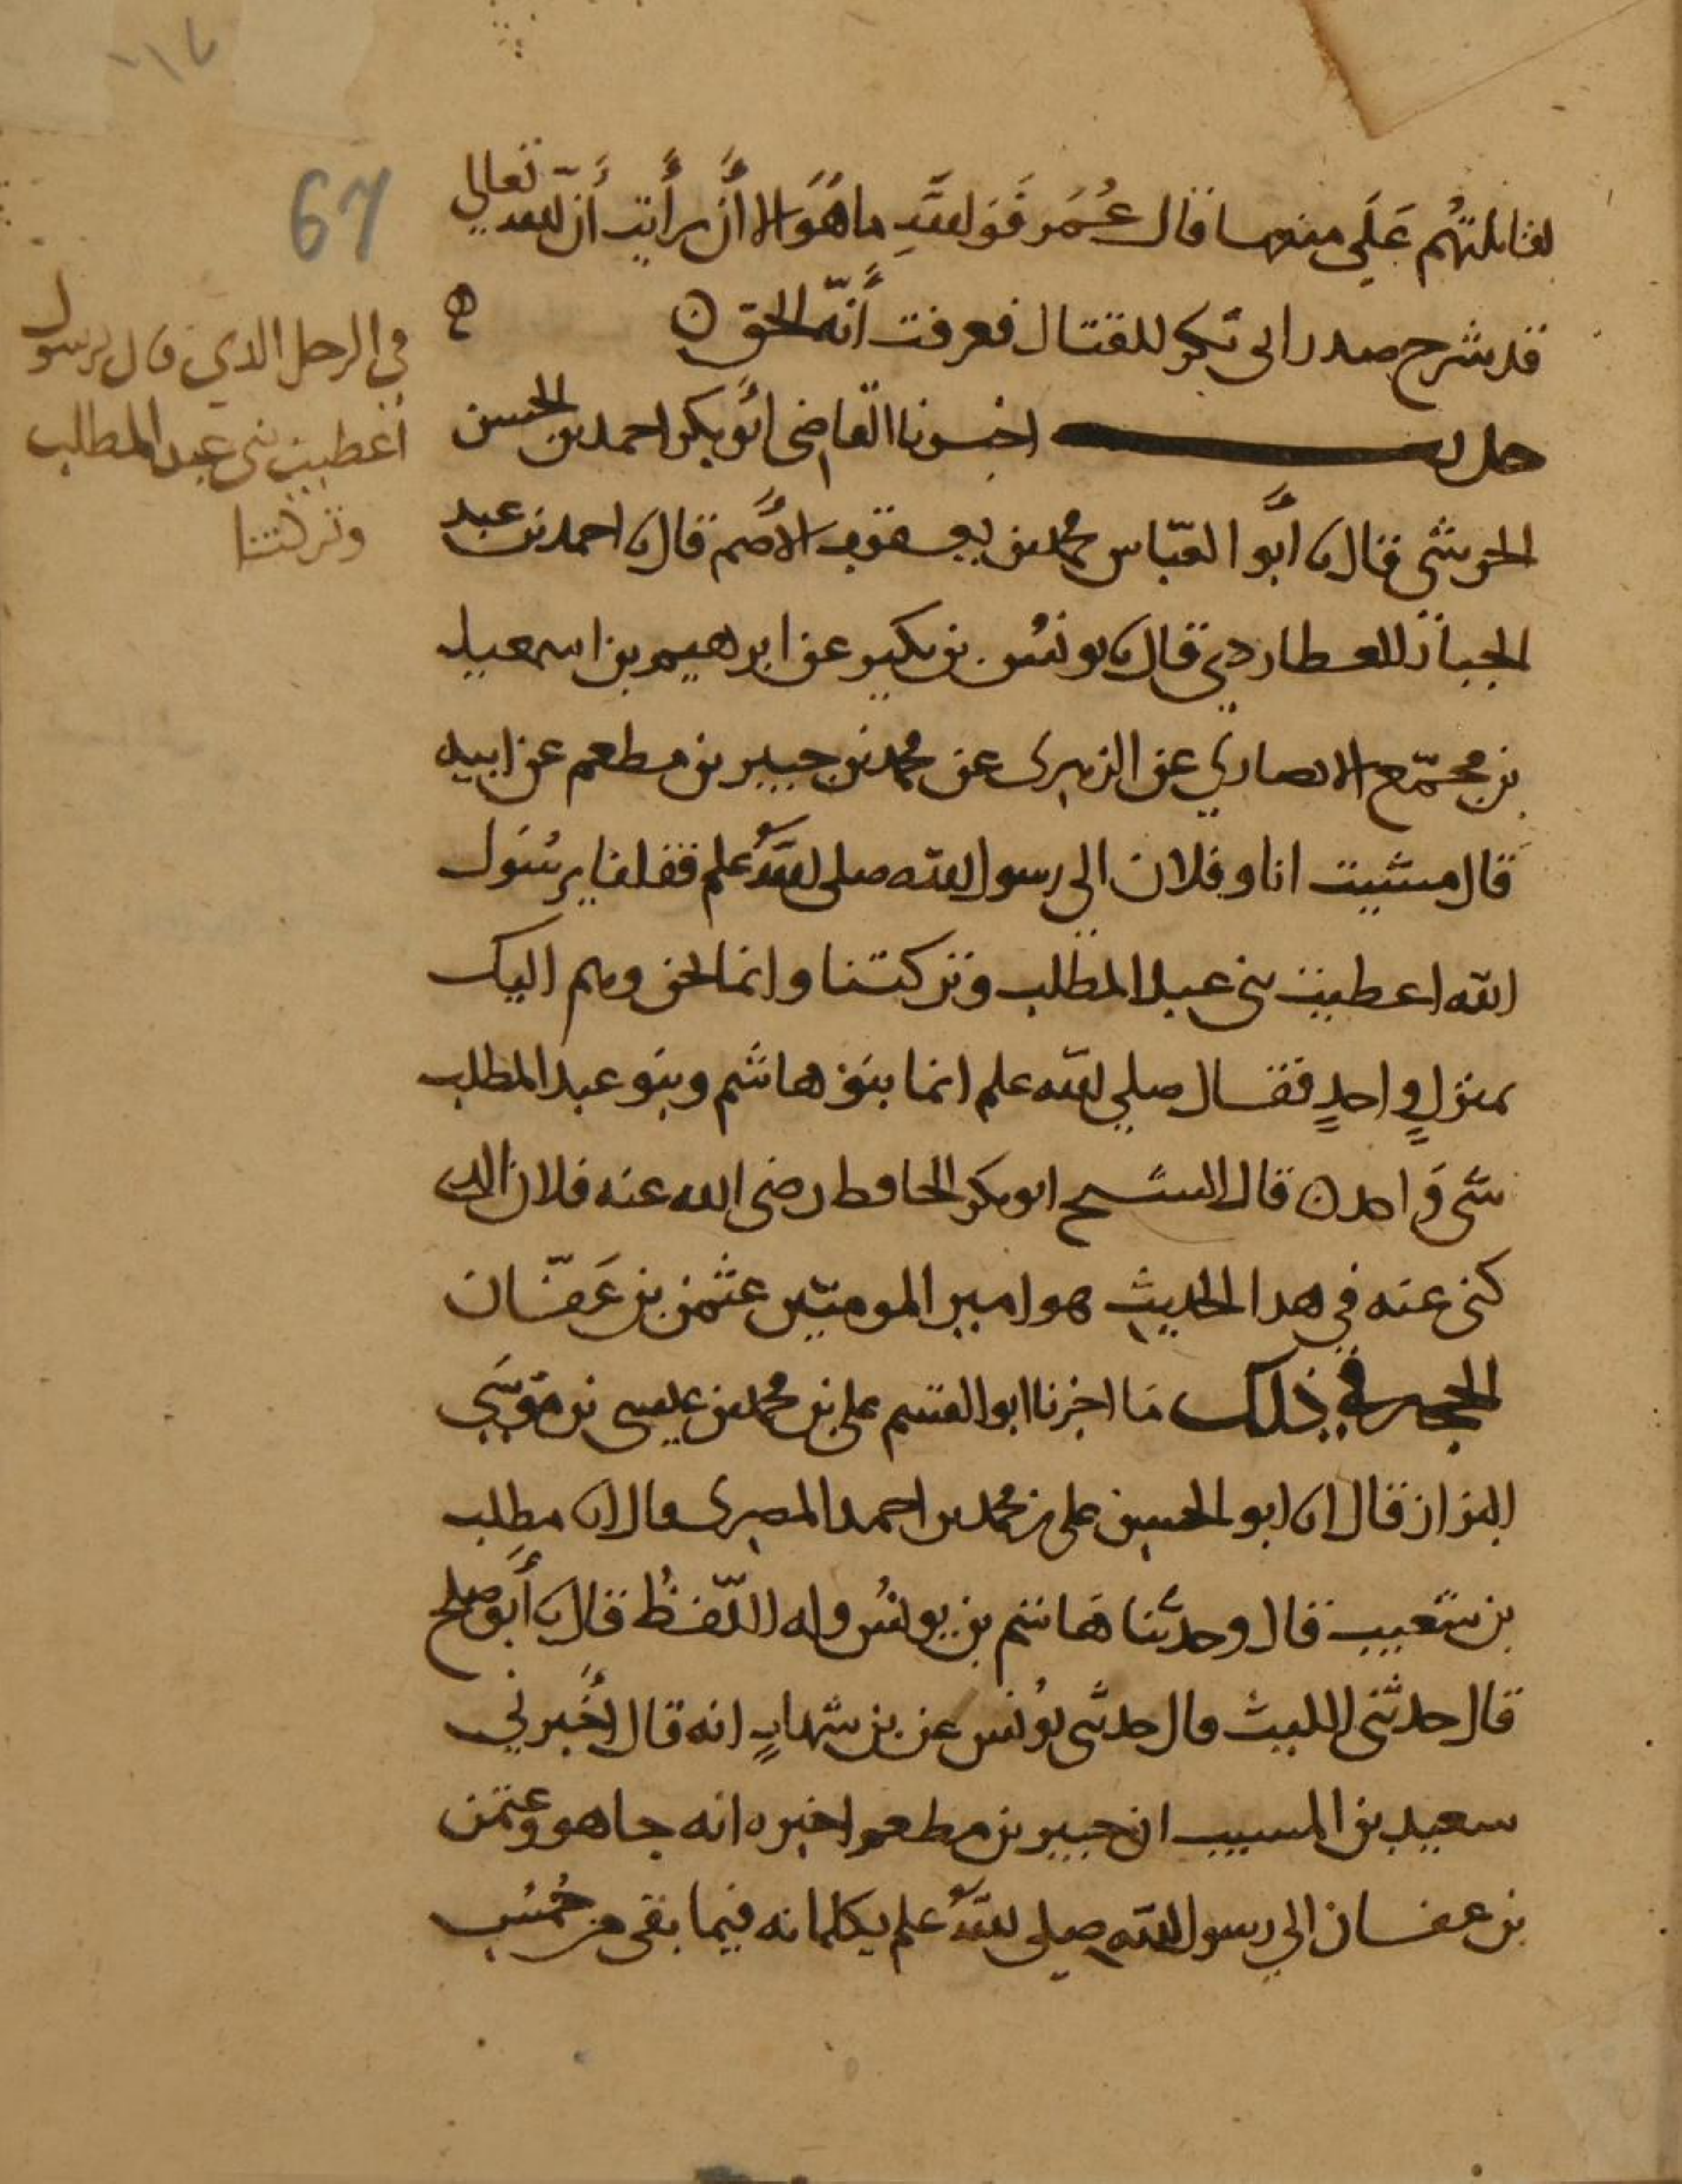 67
لقاتلتهم على منعها قال عمر فوالله ما هو الا أن رأيت أن الله تعالى
قد شرح صدر ابى بكر للقتال فعرفت أنه الحق ه
حديث اخبرنا القاضى أبو بكر احمد بن الحسن
الحرشى قال نا أبو العباس محمد بن يعقوب الأصم قال نا احمد بن عبد
الجبار العطاردي قال نا يونس بن بكير عن ابرهيم بن اسمعيل
بن مجمّع الانصاري عن الزهرى عن محمد بن جبير بن مطعم عن ابيه
قال مشيت انا وفلان الى رسول الله صلى الله علم فقلنا يرسول
الله اعطيت بنى عبد المطلب وتركتنا وانما نحن وهم اليك
بمنزل واحدٍ فقال صلى الله علم انما بنو هاشم وبنو عبد المطلب
شى واحد ه قال الشيح ابو بكر الحافظ رضى الله عنه فلان الدى
كنى عنه في هدا الحديث هو امير المومنين عثمن بن عفّان
الحجه في ذلك ما اخبرنا ابو القسم على بن محمد بن عيسى بن موسى
البزاز قال انا ابو الحسين على بن محمد بن احمد المصرى قال نا مطلب
بن شعيب قال وحدثنا هاشم بن يونس وله اللّفظُ قال نا أبو صلح
قال حدثنى الليث قال حدثنى يونس عن بن شهابٍ انه قال أخبرني
سعيد بن المسيب ان جبير بن مطعم اخبره انه جا هو وعثمن
بن عفان الى رسول الله صلى الله علم يكلمانه فيما بقى من خمس
في الرجل الدي قال يرسول
أعطيت بنى عبد المطلب
وتركتنا